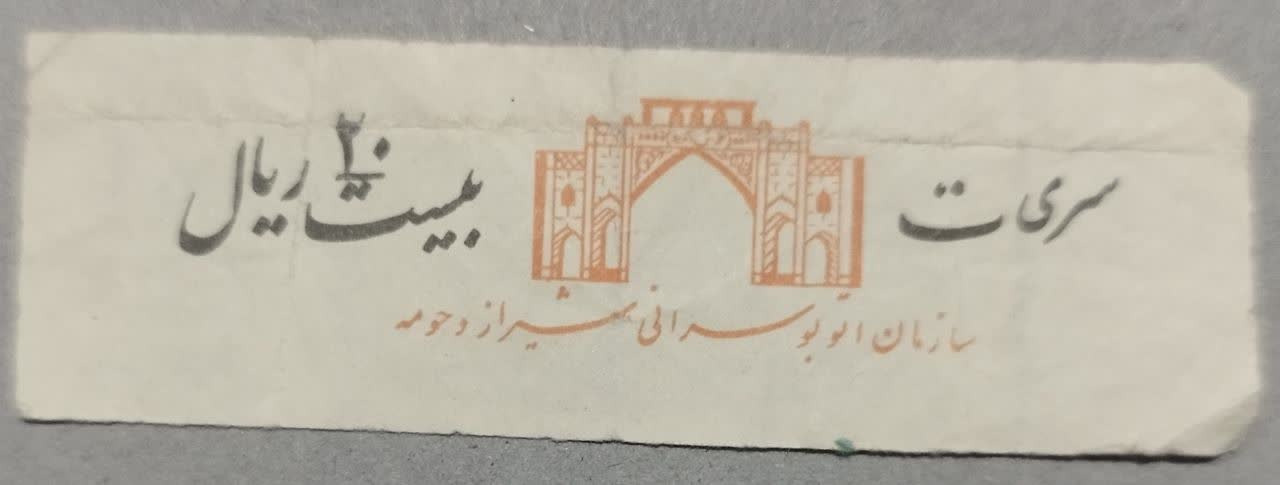 سری ت
۲۰
بیست ریال
سازمان اتوبوسرانی شیراز و حومه